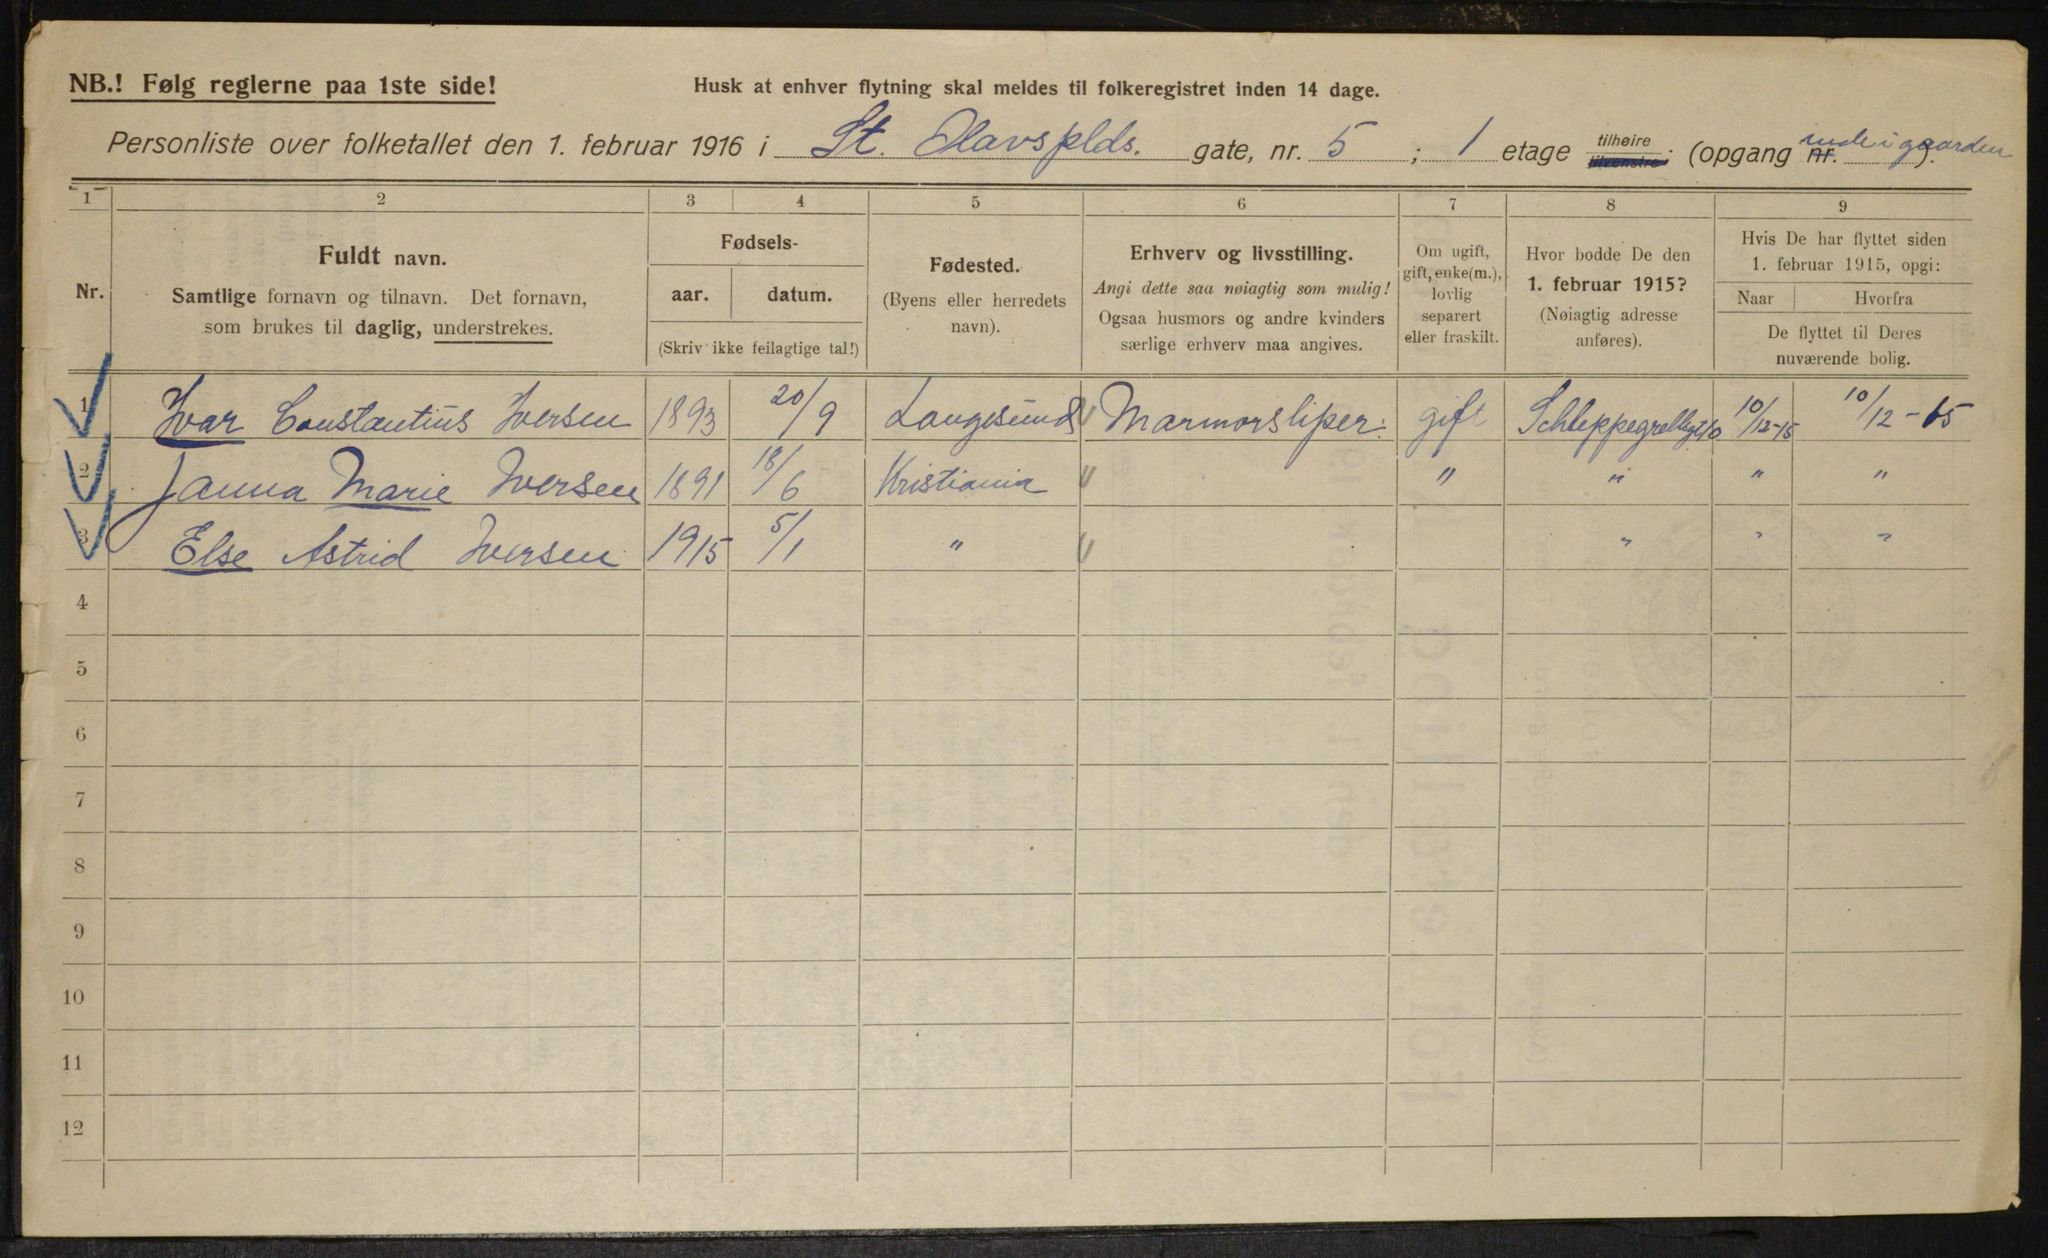 NB.! Følg reglerne paa 1ste side!
Husk at enhver flytning skal meldes til folkeregistret inden 14 dage.
Personliste over folketallet den 1. februar 1916 i St. Olavsplds. gate, nr. 5 ; 1 etage tilhøire tilvenstre. (opgang nr. inde i gaarden ).
1 2 3 4 5 6 7 8 9
Nr.
Fuldt navn.
Samtlige fornavn og tilnavn. Det fornavn,
som brukes til daglig, understrekes.
Fødsels-
aar. datum.
(Skriv ikke feilagtige tal!)
Fødested.
(Byens eller herredets
navn).
Erhverv og livsstilling.
Angi dette saa nøiagtig som mulig!
Ogsaa husmors og andre kvinders
særlige erhverv maa angives.
Om ugift,
gift, enke(m.),
lovlig
separert
eller fraskilt.
Hvor bodde De den
1. februar 1915?
(Nøiagtig adresse
anføres).
Hvis De har flyttet siden
1. februar 1915, opgi:
Naar Hvorfra
De flyttet til Deres
nuværende bolig.
1 Ivar Constantius Iversen 1893 20/9 Langesund Marmorsliper. gift Schleppegrellsgt 10 10/12-15 10/12-15
2 Janna Marie Iversen 1891 18/6 Kristiania " " " "
3 Else Astrid Iversen 1915 5/1 " " " "
4
5
6
7
8
9
10
11
12